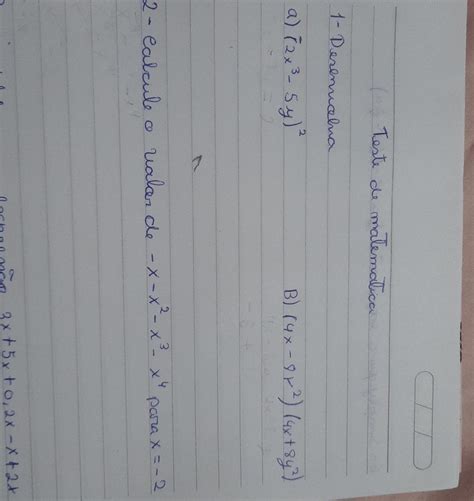 Teste de matematica
1 - Desenvolva
a) (-2x³ - 5y)²
B) (4x - 9y²) (4x + 8y²)
2 - Calcule o valor de - x - x² - x³ - x⁴ para x = - 2
3x + 5x + 0,2x - x + 2x